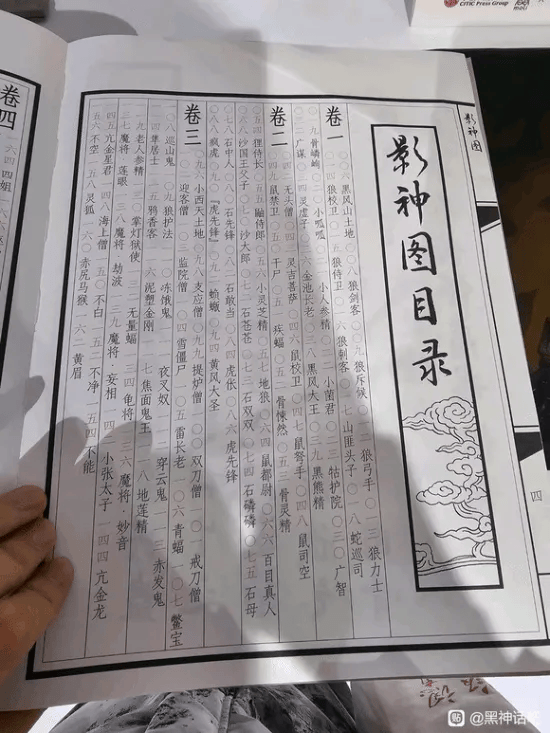 影神图
影神图目录
卷一
〇〇六 黑风山土地 〇〇八 狼剑客 〇〇九 狼斥候 狼弓手 〇一三 狼力士
〇一四 狼校卫 〇一五 狼侍卫 〇一六 狼刺客 〇一七 山匪头子 〇一八 蛇巡司
〇一九 骨嶙峋 〇二〇 小呱呱 〇二一 小人参精 〇二二 小菌君 〇二三 牯护院 〇三〇 广智
〇三二 广谋 〇三四 灵虚子 〇三六 金池长老 〇三八 黑风大王 〇三九 黑熊精
卷二
〇四二 无头僧 〇四四 灵吉菩萨 鼠校卫 鼠弩手 〇四八 鼠司空
〇四九 鼠禁卫 〇五〇 干尸 〇五一 疾蝠 〇五二 骨悚然 〇五三 骨灵精
〇五四 狸侍长 〇五五 鼬侍郎 〇五六 小灵芝精 〇五七 地狼 〇六四 鼠都尉 〇六六 百目真人
〇六八 沙国王父子 〇七〇 沙大郎 〇七二 石苍苍 〇七三 石双双 〇七四 石磷磷 〇七五 石母
〇七八 石中人 〇八〇 石先锋 〇八二 石敢当 〇八四 虎伥 〇八六 虎先锋
〇八八 疯虎 〇九〇 『虎先锋』 〇九二 蝜蝂 〇九四 黄风大圣
卷三
小西天土地 〇九八 支应僧 〇九九 提炉僧 一〇〇 双刀僧 一〇一 戒刀僧
一〇二 迎客僧 一〇三 监院僧 一〇四 雪僵尸 一〇五 雷长老 一〇六 青蝠 一〇七 鳖宝
巡山鬼 一〇九 狼护法 一一〇 冻饿鬼 一一一 夜叉奴 一一二 穿云鬼 一一三 赤发鬼
一一四 隼居士 一一五 鸦香客 一一六 泥塑金刚 一一七 焦面鬼王 一一八 地莲精
一一九 老人参精 掌灯狱使 无量蝠 一三四 龟将 一三六 魔将·妙音
一三七 魔将·莲眼 一三八 魔将·劫波 一三九 魔将·妄相 一四〇 小张太子 一四四 亢金龙
一四五 亢金星君 一四八 海上僧 一五〇 不白 一五二 不净 一五四 不能
一五六 不空 一五八 灵狐 一六〇 赤尻马猴 一六二 黄眉
卷四
一六四 四姐
四
CITIC Press Group